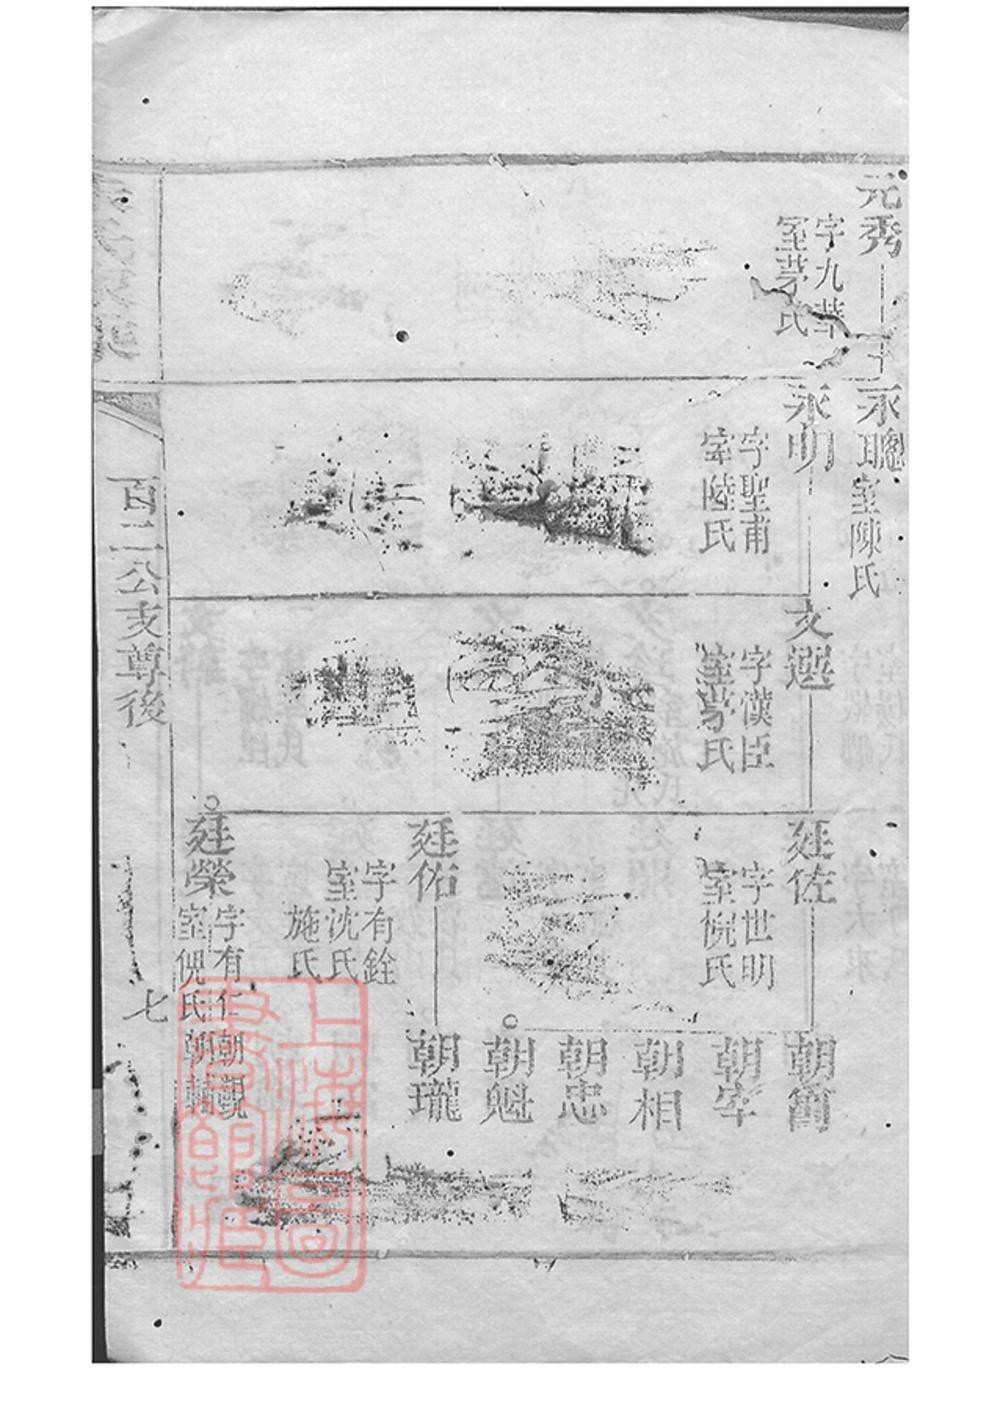 元秀
字九華
室茅氏
永聰
室陳氏
永明
字聖甫
室陸氏
文選
字漢臣
室茅氏
廷佐
字世明
室倪氏
廷佑
字有銓
室沈氏
施氏
廷榮
字有仁
室倪氏
朝宰
朝相
朝忠
朝魁
朝瓏
朝觀
朝輔
百二公支尊後
七
上海圖書館藏